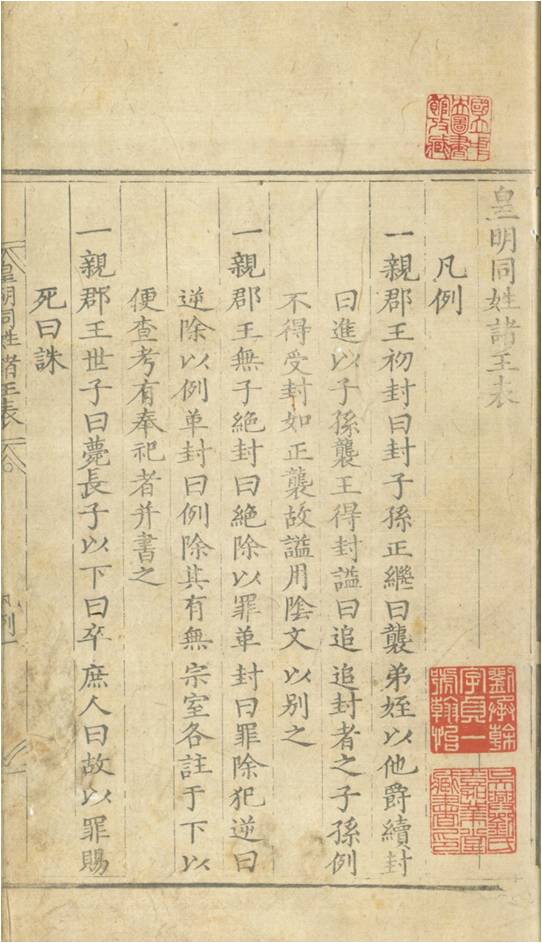 國立中
央圖書
館收藏
皇明同姓諸王表
劉承榦
字貞一
號翰怡
吳興劉氏
嘉業堂
藏書印
凡例
一親郡王初封曰封子孫正繼曰襲弟姪以他爵續封
曰進以子孫襲王得封謚曰追追封者之子孫例
不得受封如正襲故謚用陰文以别之
一親郡王無子絶封曰絶除以罪革封曰罪除犯逆曰
逆除以例革封曰例除其有無宗室各註于下以
便查考有奉祀者并書之
一親郡王世子曰薨長子以下曰卒庶人曰故以罪賜
死曰誅
皇明同姓諸王表
凡例
一